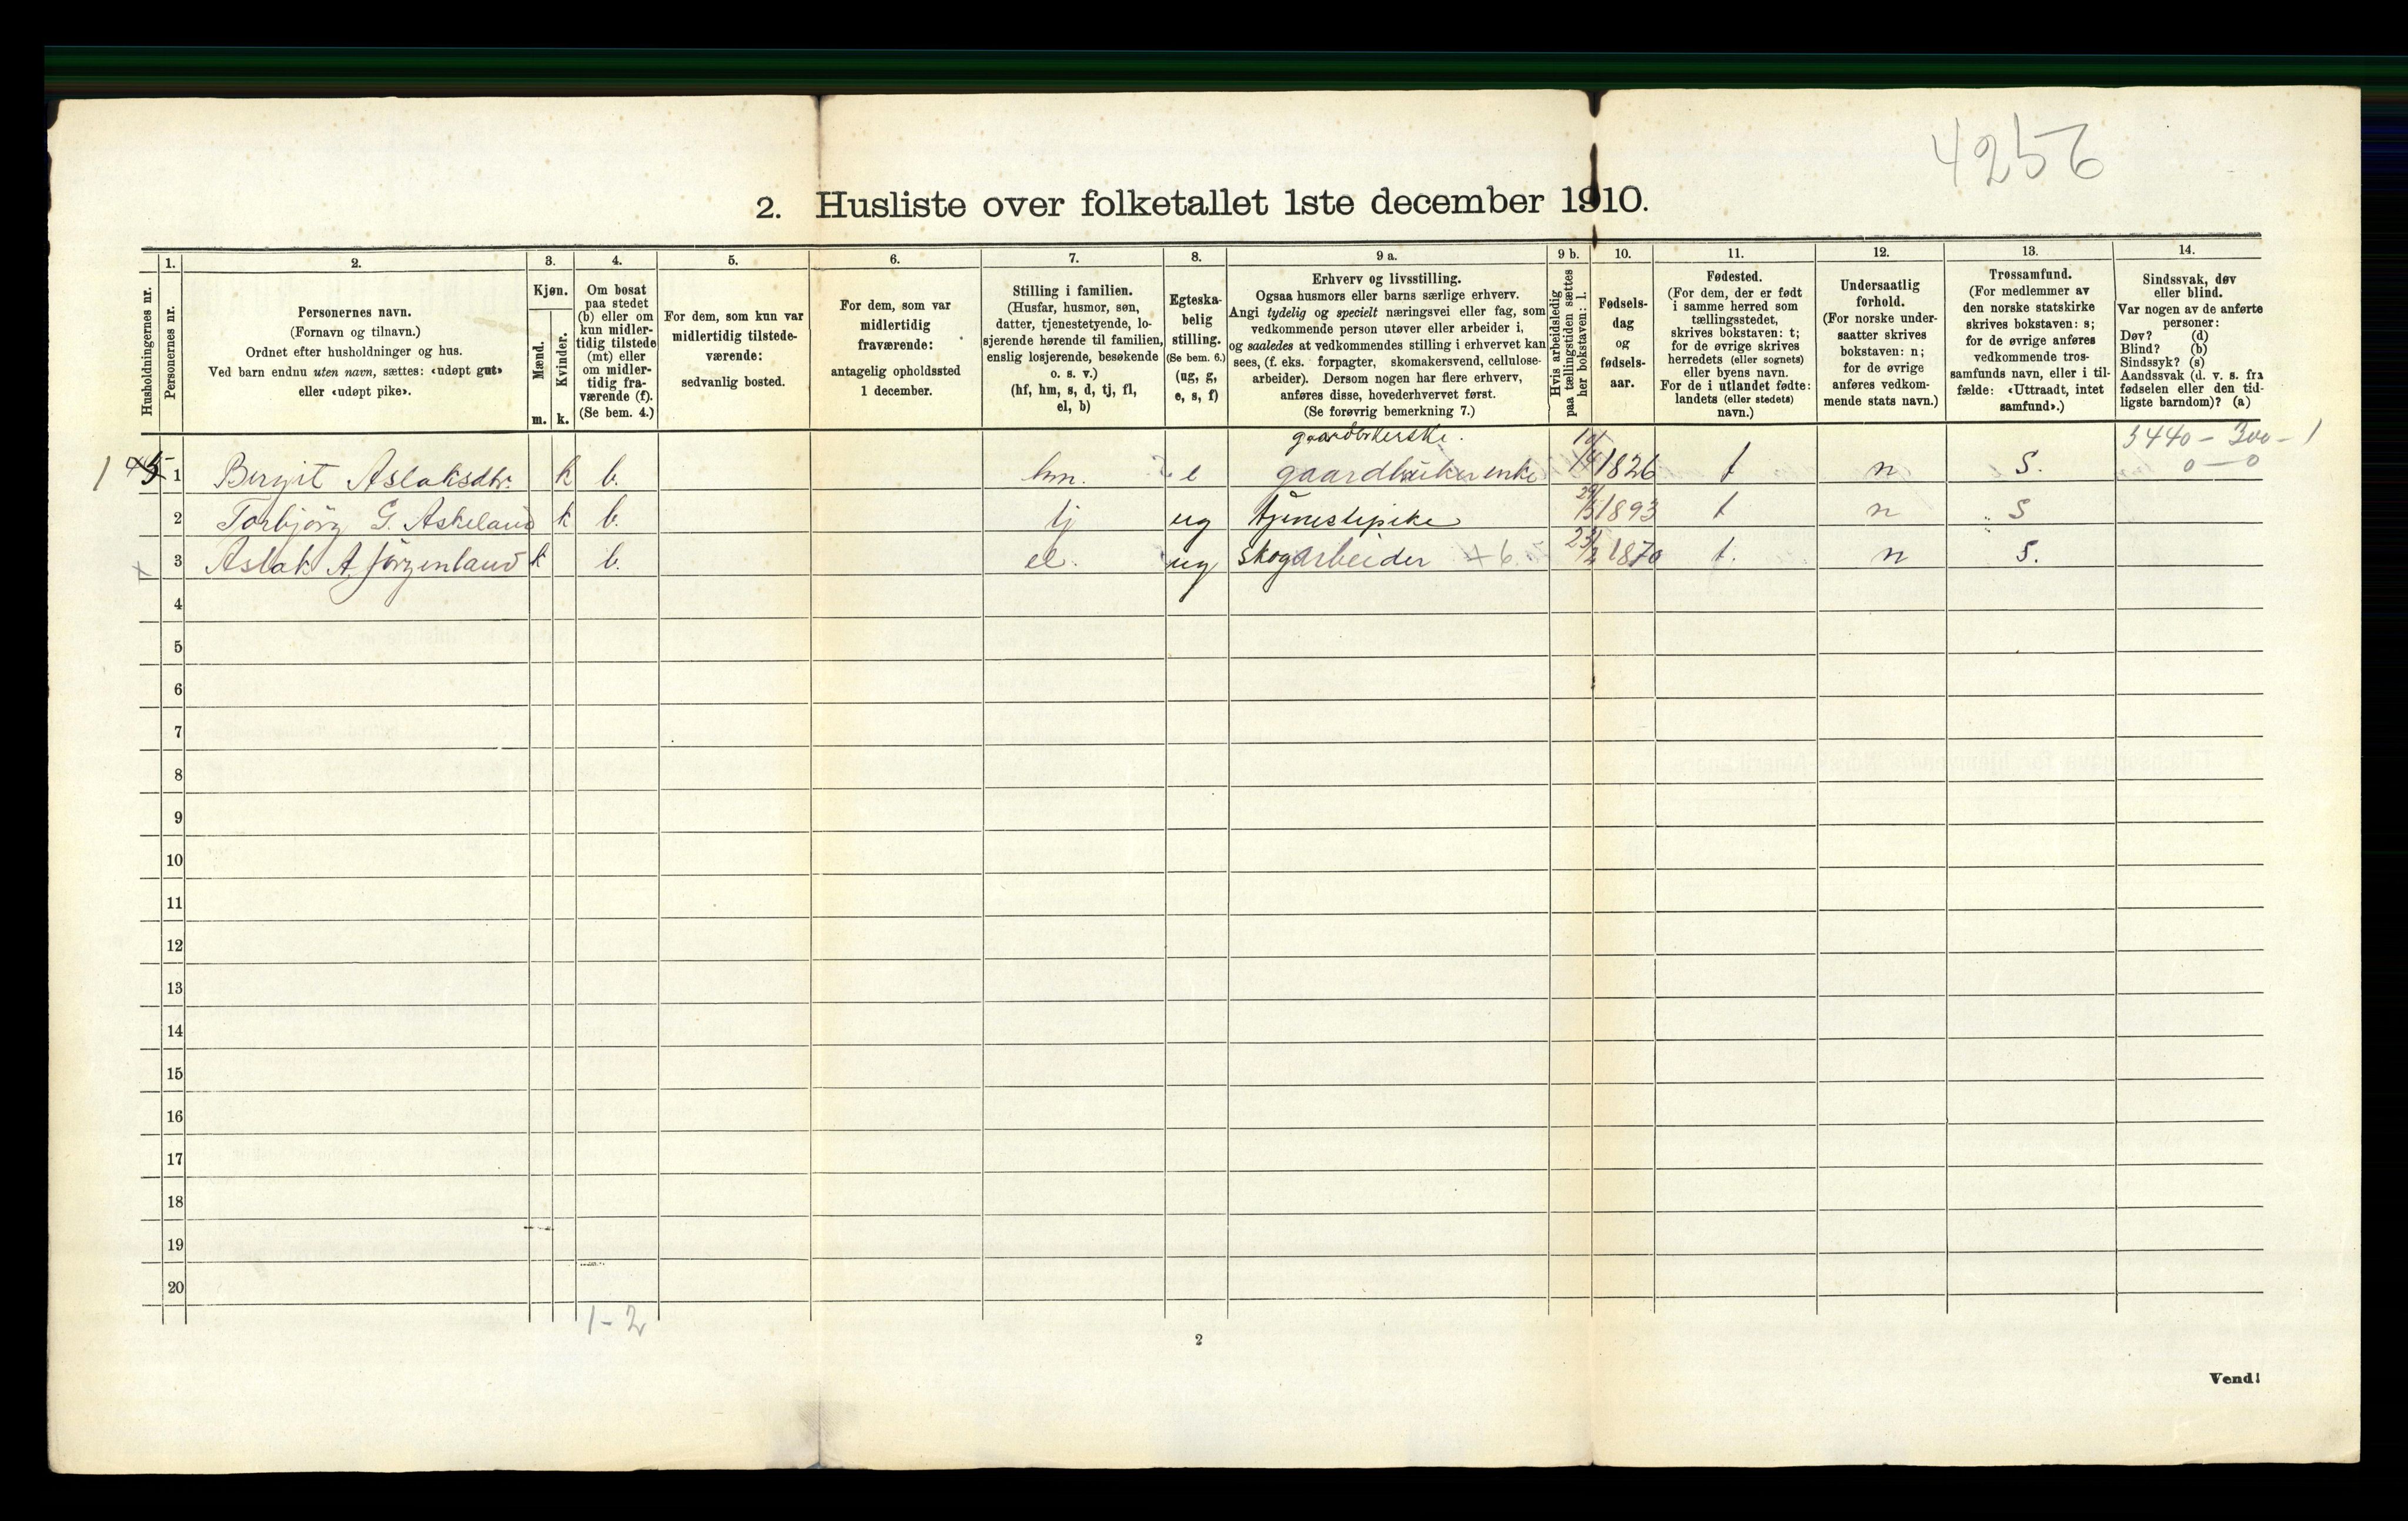 4256
2. Husliste over folketallet 1ste december 1910.
Husholdningernes nr.
1.
Personernes nr.
2.
Personernes navn.
(Fornavn og tilnavn.)
Ordnet efter husholdninger og hus.
Ved barn endnu uten navn, sættes: «udøpt gut»
eller «udøpt pike».
3.
Kjøn.
Mænd.
Kvinder.
m. k.
4.
Om bosat
paa stedet
(b) eller om
kun midler-
tidig tilstede
(mt) eller
om midler-
tidig fra-
værende (f).
(Se bem. 4.)
5.
For dem, som kun var
midlertidig tilstede-
værende:
sedvanlig bosted.
6.
For dem, som var
midlertidig
fraværende:
antagelig opholdssted
1 december.
7.
Stilling i familien.
(Husfar, husmor, søn,
datter, tjenestetyende, lo-
sjerende hørende til familien,
enslig losjerende, besøkende
o. s. v.)
(hf, hm, s, d, tj, fl,
el, b)
8.
Egteska-
belig
stilling.
(Se bem. 6.)
(ug, g,
e, s, f)
9 a.
Erhverv og livsstilling.
Ogsaa husmors eller barns særlige erhverv.
Angi tydelig og specielt næringsvei eller fag, som
vedkommende person utøver eller arbeider i,
og saaledes at vedkommendes stilling i erhvervet kan
sees, (f. eks. forpagter, skomakersvend, cellulose-
arbeider). Dersom nogen har flere erhverv,
anføres disse, hovederhvervet først.
(Se forøvrig bemerkning 7.)
9 b.
Hvis arbeidsledig
paa tællingstiden sættes
her bokstaven: l.
10.
Fødsels-
dag
og
fødsels-
aar.
11.
Fødested.
(For dem, der er født
i samme herred som
tællingsstedet,
skrives bokstaven: t;
for de øvrige skrives
herredets (eller sognets)
eller byens navn.
For de i utlandet fødte:
landets (eller stedets)
navn.)
12.
Undersaatlig
forhold.
(For norske under-
saatter skrives
bokstaven: n;
for de øvrige
anføres vedkom-
mende stats navn.)
13.
Trossamfund.
(For medlemmer av
den norske statskirke
skrives bokstaven: s;
for de øvrige anføres
vedkommende tros-
samfunds navn, eller i til-
fælde: «Uttraadt, intet
samfund».)
14.
Sindssvak, døv
eller blind.
Var nogen av de anførte
personer:
Døv? (d)
Blind? (b)
Sindssyk? (s)
Aandssvak (d. v. s. fra
fødselen eller den tid-
ligste barndom)? (a)
gaardbrukerske. 3440 – 300 – 1
1 1 Bergit Aslaksdtr. k b. hm. e gaardbrukerenke 10/4 1826 t n S. 0 – 0
2 Torbjörg G. Askeland k b. tj ug tjenestepike 1893 t n S
3 Aslak A. Jörgenland b. el. ug skogarbeider 1870 t. n S.
4
5
6
7
8
9
10
11
12
13
14
15
16
17
18
19
20
1 – 2
2
Vend!